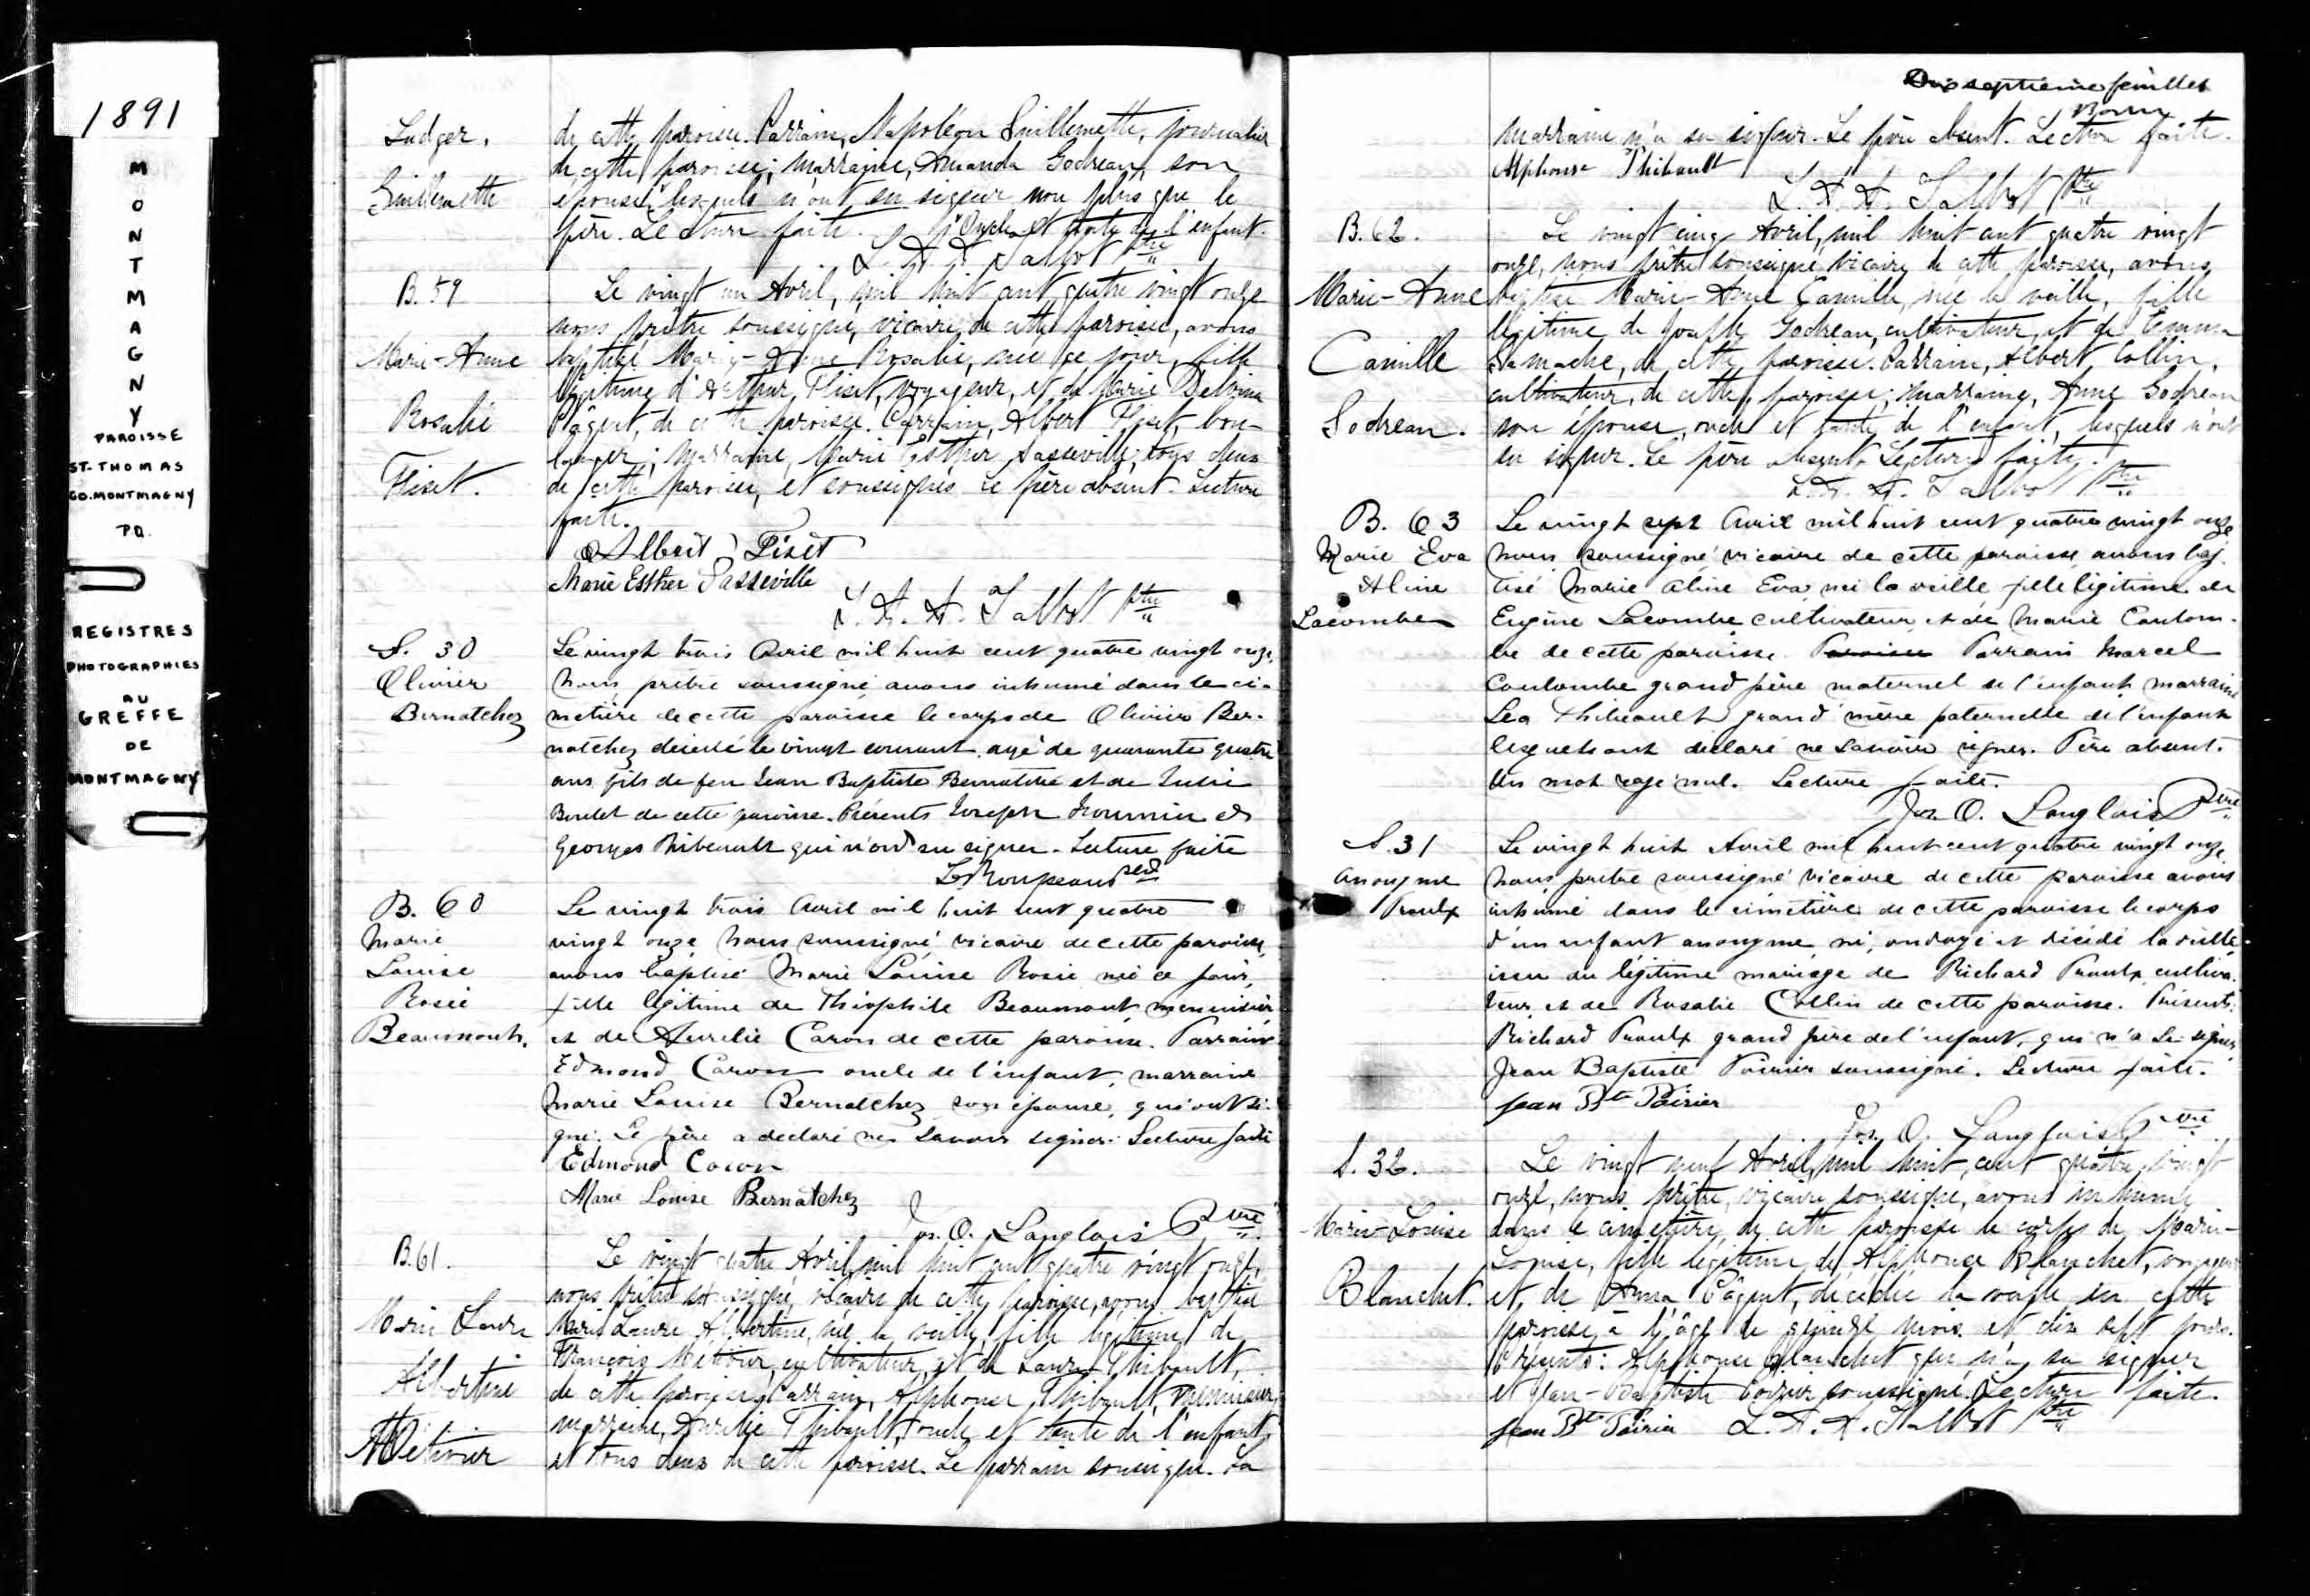 1891
MONTMAGNY
PAROISSE
ST-THOMAS
CO.MONTMAGNY
PQ.
REGISTRES
PHOTOGRAPHIES
AU
GREFFE
DE
MONTMAGNY
Ludger.
Guillemette
de cette paroisse. Parrain, Napoléon Guillemette, journalier
de cette paroisse; marraine, Amanda Godreau, son
épouse, lesquels n'ont su signer non plus que le
père. Lecture faite. Oncle et tante de l'enfant.
L. A. A. Talbot Ptre
B. 59
Marie-Anne
Rosalie
Fiset.
Le vingt un Avril, mil huit cent quatre vingt onze
nous prêtre soussigné, vicaire de cette paroisse, avons
baptisé Marie-Anne Rosalie, née ce jour, fille
légitime d'Arthur Fiset, voyageur, et de Marie Delvina
Pâquet, de cette paroisse. Parrain, Albert Fiset, bou-
langer; Marraine, Marie Esther Sasseville, tous deux
de cette paroisse, et soussignés. Le père absent. Lecture
faite.
Albert Fiset
Marie Esther Sasseville
L. A. A. Talbot Ptre
S. 30
Olivier
Bernatchez
Le vingt trois Avril mil huit cent quatre vingt onze,
nous prêtre soussigné avons inhumé dans le ci-
metière de cette paroisse le corps de Olivier Ber-
natchez décédé le vingt courant agé de quarante quatre
ans fils de feu Jean Baptiste Bernatchez et de Julie
Boulet de cette paroisse. Présents Joseph Fournier et
Georges Thibeault qui n'ont su signer. Lecture faite
B. 60
Marie
Louise
Rosie
Beaumont.
Le vingt trois Avril mil huit cent quatre
vingt onze nous soussigné vicaire de cette paroisse,
avons baptisé Marie Louise Rosie née ce jour,
fille légitime de Théophile Beaumont, menuisier
et de Aurelie Caron de cette paroisse. Parrain
Edmond Caron oncle de l'enfant, marraine
Marie Louise Bernatchez son épouse, qui ont si-
gné. Le père a declaré ne savoir signer. Lecture faite
Edmond Caron
Marie Louise Bernatchez
Jos. O. Langlois Ptre
B. 61.
Marie Laure
Albertine
Métivier
Le vingt quatre Avril, mil huit cent quatre vingt onze,
nous prêtre soussigné, vicaire de cette paroisse, avons baptisé
Marie Laure Albertine, née la veille, fille légitime de
François Métivier, cultivateur, et de Laure Thibault,
de cette paroisse. Parrain, Alphonse Thibault, menuisier,
marraine, Aurélie Thibault, oncle et tante de l'enfant,
et tous deux de cette paroisse. Le parrain soussigné. La
Dix septième feuillet
marraine n'a su signer. Le père absent. Lecture faite.
Alphonse Thibault
L. A. A. Talbot Ptre
B. 62.
Marie-Anne
Camille
Godreau.
Le vingt cinq Avril, mil huit cent quatre vingt
onze, nous prêtre soussigné, vicaire de cette paroisse, avons
baptisé Marie-Anne Camille, née la veille, fille
légitime de Joseph Godreau, cultivateur, et de Emma
Gamache, de cette paroisse. Parrain, Albert Collin,
cultivateur, de cette paroisse; marraine, Anne Godreau
son épouse, oncle et tante de l'enfant, lesquels n'ont
su signer. Le père absent. Lecture faite.
L. A. A. Talbot Ptre
B. 63
Marie Eva
Aline
Lacombe
Le vingt sept Avril mil huit cent quatre vingt onze
nous soussigné vicaire de cette paroisse avons bap-
tisé Marie Aline Eva née la veille fille légitime de
Eugène Lacombe cultivateur et de Marie Coulom-
be de cette paroisse. Paroisse Parrain Marcel
Coulombe grand père maternel de l'enfant marraine
Lea Thibeault grand'mère paternelle de l'enfant
lesquels ont déclaré ne savoir signer. Père absent.
Un mot rayé nul. Lecture faite.
Jos. O. Langlois Ptre
S. 31
Anonyme
Proulx
Le vingt huit Avril mil huit cent quatre vingt onze
nous prêtre soussigné vicaire de cette paroisse avons
inhumé dans le cimetière de cette paroisse le corps
d'un enfant anonyme né, ondoyé et décédé la veille
issu du légitime mariage de Richard Proulx cultiva-
teur et de Rosalie Collin de cette paroisse. Présents:
Richard Proulx grand père de l'enfant, qui n'a su signer
Jean Baptiste Poirier soussigné. Lecture faite.
Jean Bte Poirier
Jos. O. Langlois Ptre
S. 32.
Marie-Louise
Blanchet.
Le vingt neuf Avril, mil huit cent quatre vingt
onze, nous prêtre, vicaire soussigné, avons inhumé
dans le cimetière de cette paroisse le corps de Marie-
Louise, fille légitime de Alphonse Blanchet, voyageur
et de Anna Pâquet, décédée la veille en cette
paroisse à l'âge de quinze mois et dix sept jours.
Présents: Alphonse Blanchet qui n'a su signer
et Jean-Baptiste Poirier soussigné. Lecture faite.
Jean Bte Poirier L. A. A. Talbot Ptre